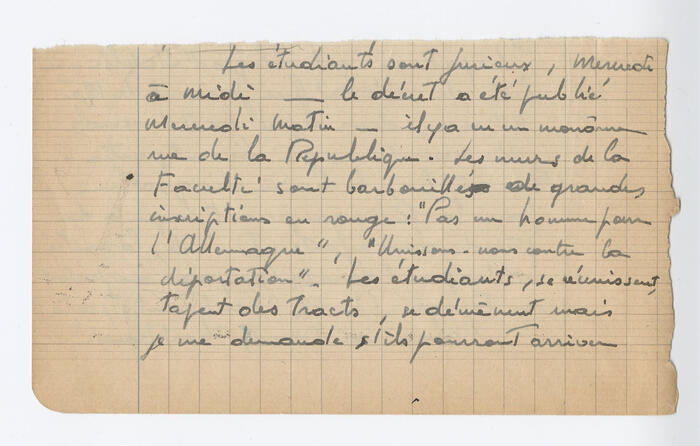 Les étudiants sont furieux, Mercredi
à midi — le décret a été publié
Mercredi Matin — il y a eu un monôme
rue de la République. Les murs de la
Faculté sont barbouillés de grandes
inscriptions en rouge : "Pas un homme pour
l'Allemagne", "Unissons-nous contre la
déportation". Les étudiants, se réunissent,
tapent des tracts, se démènent mais
je me demande s'ils pourront arriver